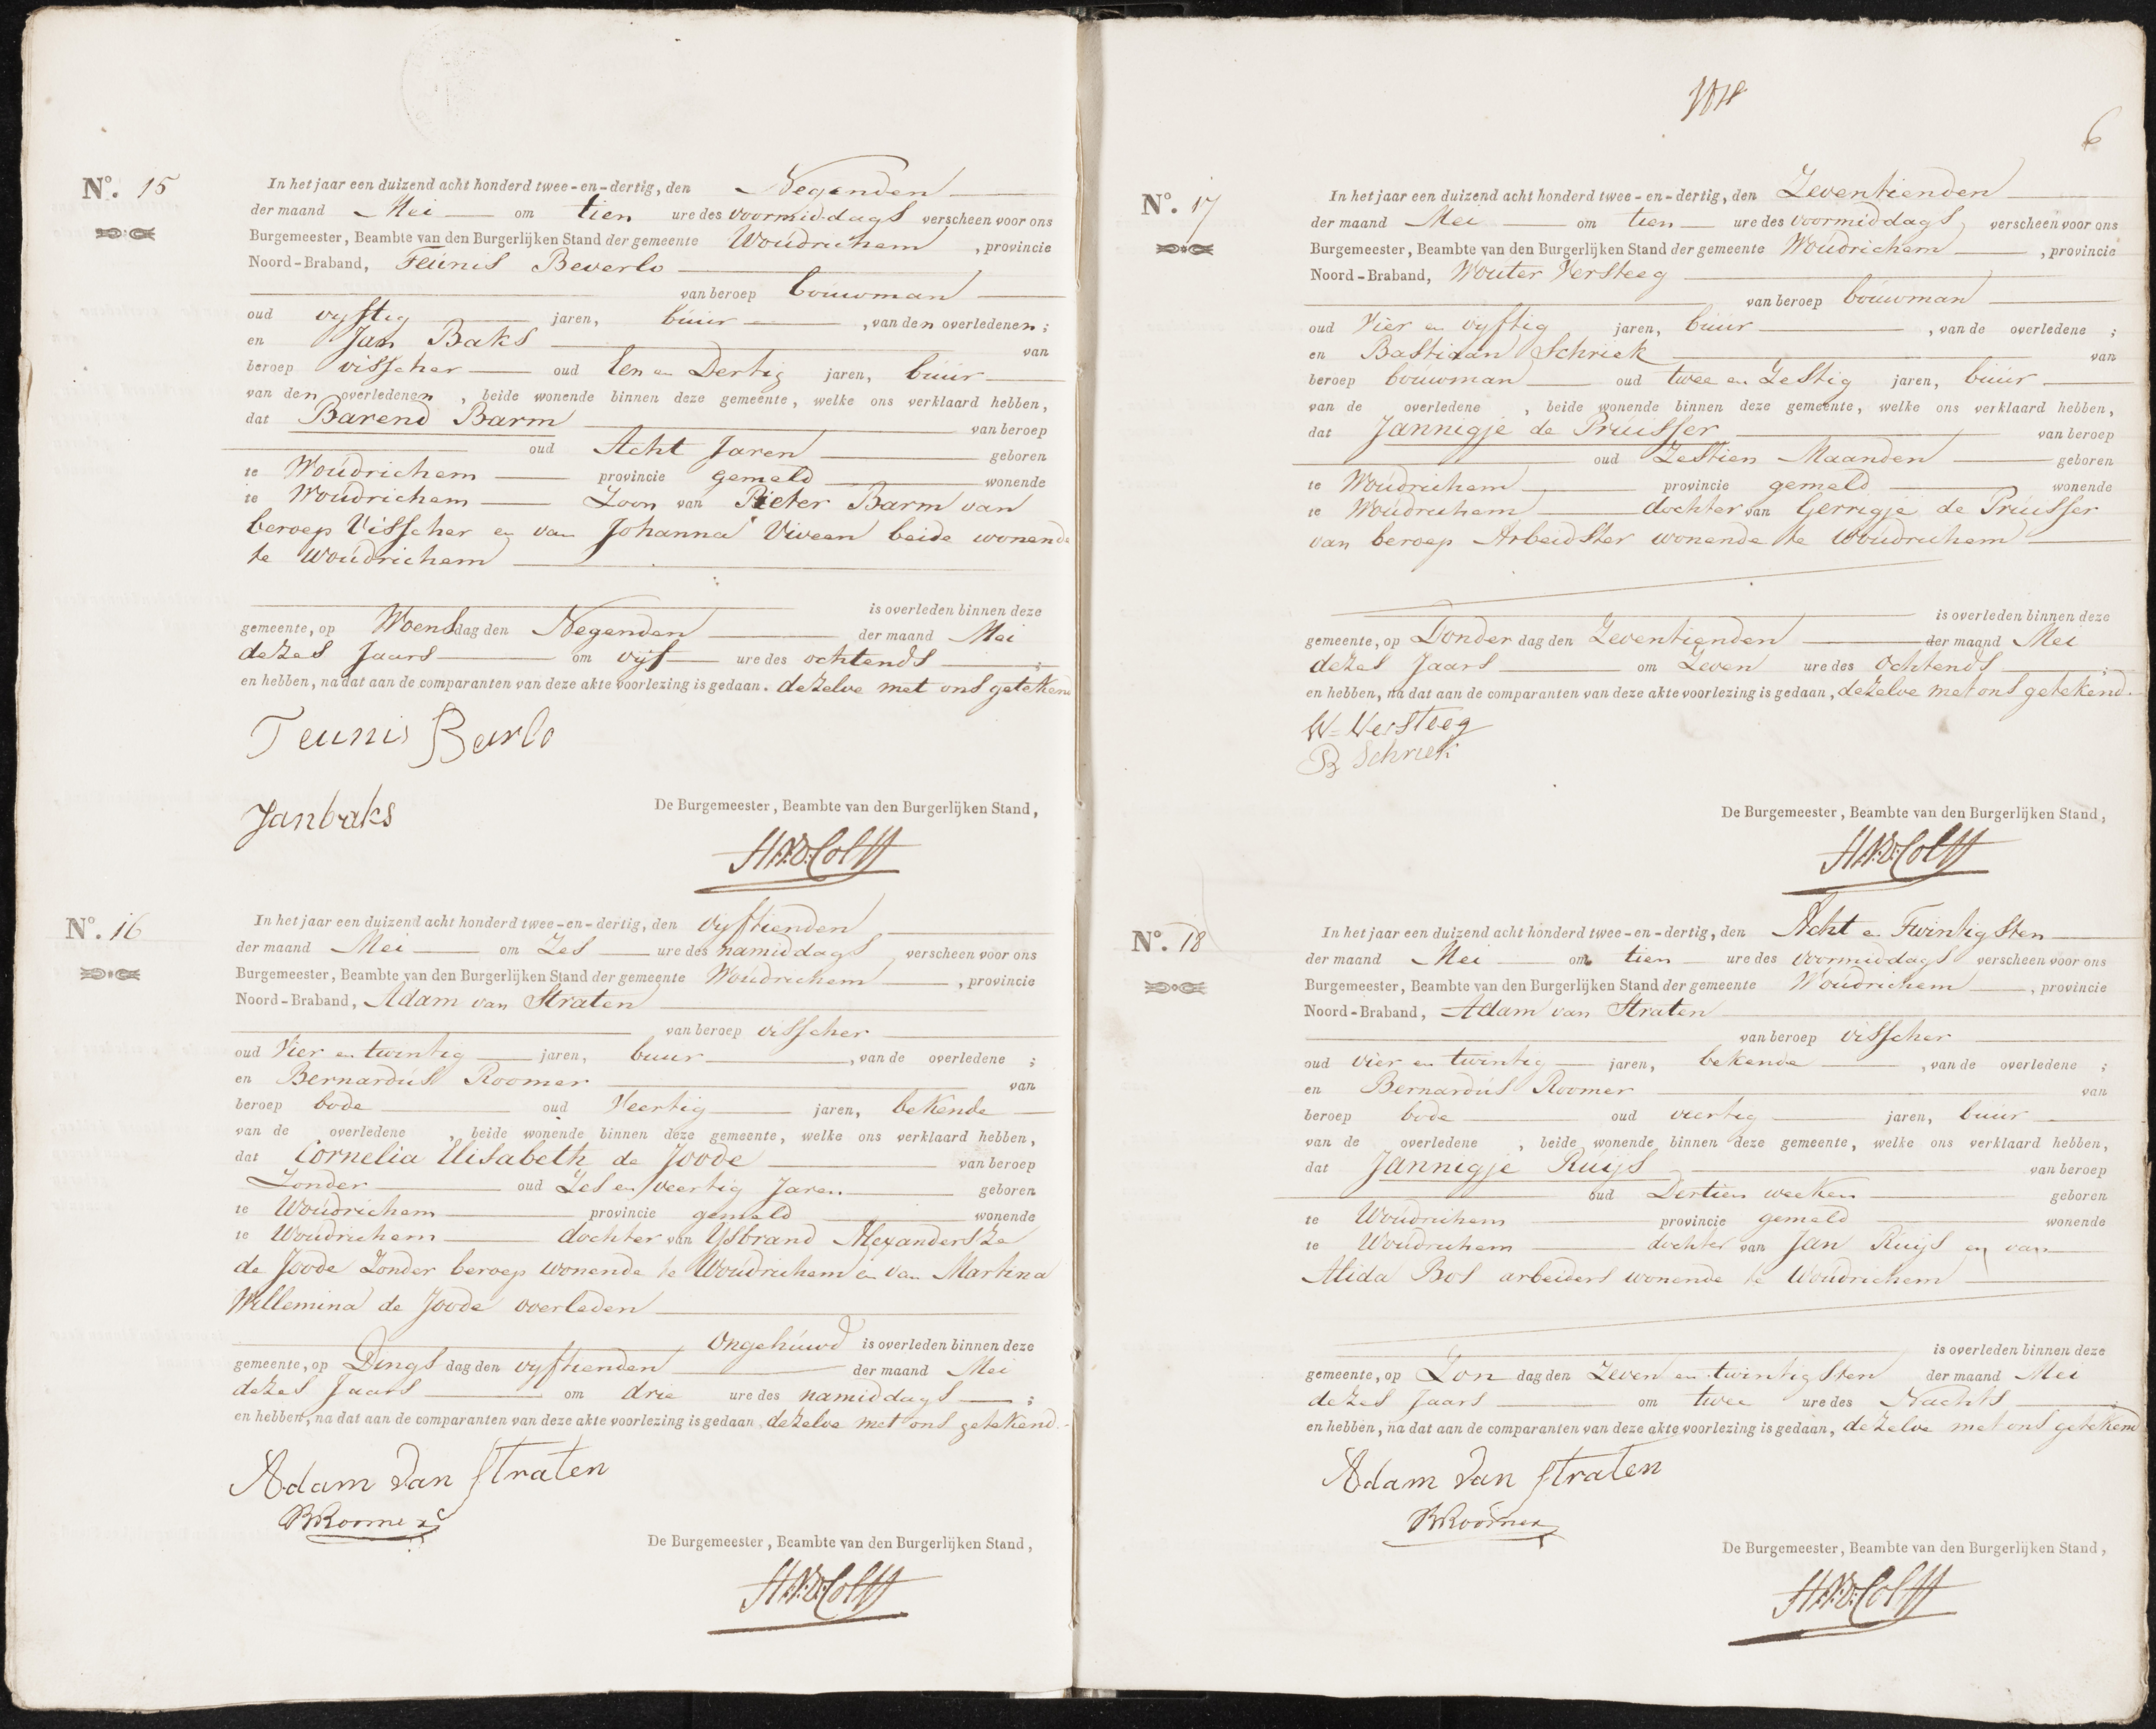 Nº. 15
In het jaar een duizend acht honderd twee-en-dertig, den Negenden
der maand Mei om tien ure des voormiddags verscheen voor ons
Burgemeester, Beambte van den Burgerlijken Stand der gemeente Woúdrichem, provincie
Noord-Braband, Teúnis Beverlo
van beroep boúwman
oud vyftig jaren, búúr, van den overledenen;
en Jan Baks van
beroep visscher oud Een en Dertig jaren, búúr
van den overledenen, beide wonende binnen deze gemeente, welke ons verklaard hebben,
dat Barend Barm van beroep
oud Acht Jaren geboren
te Woúdrichem provincie gemeld wonende
te Woúdrichem Zoon van Pieter Barm van
beroep Visscher en van Johanna Viveen beide wonende
te Woúdrichem
is overleden binnen deze
gemeente, op Woensdag den Negenden der maand Mei
dezes Jaars om vyf ure des ochtends;
en hebben, na dat aan de comparanten van deze akte voorlezing is gedaan. dezelve met ons getekend
Teunis Berlo
Janbaks
De Burgemeester, Beambte van den Burgerlijken Stand,
Nº. 16
In het jaar een duizend acht honderd twee-en-dertig, den vyftienden
der maand Mei om Zes ure des namiddags verscheen voor ons
Burgemeester, Beambte van den Burgerlijken Stand der gemeente Woúdrichem, provincie
Noord-Braband, Adam van Straten
van beroep visscher
oud Vier en twintig jaren, buur, van de overledene;
en Bernardús Roomer van
beroep bode oud Veertig jaren, bekende
van de overledene, beide wonende binnen deze gemeente, welke ons verklaard hebben,
dat Cornelia Elisabeth de Joode van beroep
Zonder oud Zes en veertig Jaren geboren
te Woúdrichem provincie gemeld wonende
te Woúdrichem dochter van Ysbrand Alexandersze
de Joode Zonder beroep wonende te Woúdrichem en van Martina
Willemina de Joode overleden
Ongehúwd is overleden binnen deze
gemeente, op Dingsdag den vyftienden der maand Mei
dezes Jaars om drie ure des namiddags;
en hebben, na dat aan de comparanten van deze akte voorlezing is gedaan, dezelve met ons getekend.
Adam van Straten
BRoomer
De Burgemeester, Beambte van den Burgerlijken Stand,
6
Nº. 17
In het jaar een duizend acht honderd twee-en-dertig, den Zeventienden
der maand Mei om tien ure des voormiddags verscheen voor ons
Burgemeester, Beambte van den Burgerlijken Stand der gemeente Woúdrichem, provincie
Noord-Braband, Wouter Versteeg
van beroep boúwman
oud Vier en vyftig jaren, búúr, van de overledene;
en Bastiaan Schriek van
beroep boúwman oud twee en Zestig jaren, búúr
van de overledene, beide wonende binnen deze gemeente, welke ons verklaard hebben,
dat Jannigje de Prúisser van beroep
oud Zestien Maanden geboren
te Woúdrichem provincie gemeld wonende
te Woúdrichem dochter van Gerrigje de Prúisser
van beroep Arbeidster wonende te Woúdrichem
is overleden binnen deze
gemeente, op Donderdag den Zeventienden der maand Mei
dezes Jaars om Zeven ure des Ochtends;
en hebben, na dat aan de comparanten van deze akte voorlezing is gedaan, dezelve met ons getekend.
W=Versteeg
B Schriek
De Burgemeester, Beambte van den Burgerlijken Stand,
Nº. 18
In het jaar een duizend acht honderd twee-en-dertig, den Acht en Twintigsten
der maand Mei om tien ure des voormiddags verscheen voor ons
Burgemeester, Beambte van den Burgerlijken Stand der gemeente Woúdrichem, provincie
Noord-Braband, Adam van Straten
van beroep visscher
oud vier en twintig jaren, bekende, van de overledene;
en Bernardús Roomer van
beroep bode oud veertig jaren, búúr
van de overledene, beide wonende binnen deze gemeente, welke ons verklaard hebben,
dat Jannigje Rúijs van beroep
oud Dertien weeken geboren
te Woúdrichem provincie gemeld wonende
te Woúdrichem dochter van Jan Rúijs en van
Alida Bos arbeiders wonende te Woúdrichem
is overleden binnen deze
gemeente, op Zondag den Zeven en twintigsten der maand Mei
dezes Jaars om twee ure des Nachts;
en hebben, na dat aan de comparanten van deze akte voorlezing is gedaan, dezelve met ons getekend
Adam van Straten
BRoomer
De Burgemeester, Beambte van den Burgerlijken Stand,